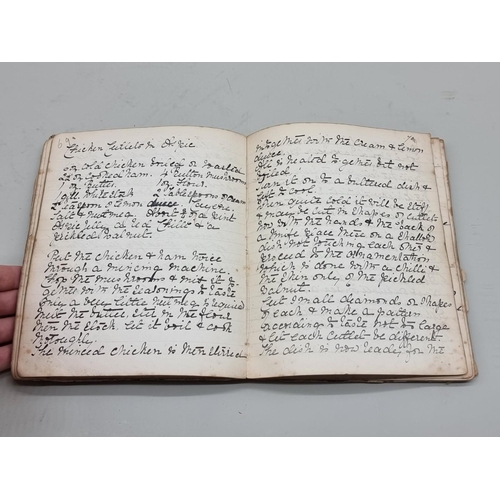 Chicken Cutlets in Aspic
cold chicken
cooked ham. 4 button mushrooms
1 oz butter 1 oz flour.
1 gill white stock 2 tablespoons cream
1 teaspoon lemon juice
Salt & nutmeg About a pint
aspic jelly a red chilli & a
pickled walnut.
Put the chicken & ham twice
through a mincing machine.
Chop the mushrooms & mix it
with the seasonings to taste
Only a very little nutmeg is required
Melt the butter, stir in the flour
then the stock. Let it boil & cook
thoroughly.
The minced chicken is then stirred
in together with the cream & lemon
juice.
All is heated together but not
boiled.
Turn it on to a buttered dish &
left to cool.
When quite cold it will be stiff
& may be cut in shapes or cutlets
with the hands & the back of
a knife. Place these on a shallow
dish not touching each other &
proceed to the ornamentation
which is done with a chilli &
the skin only of the pickled
walnut.
Cut small diamonds or shapes
of each & make a pattern
according to taste not too large
& let each cutlet be different.
The dish is now ready for the